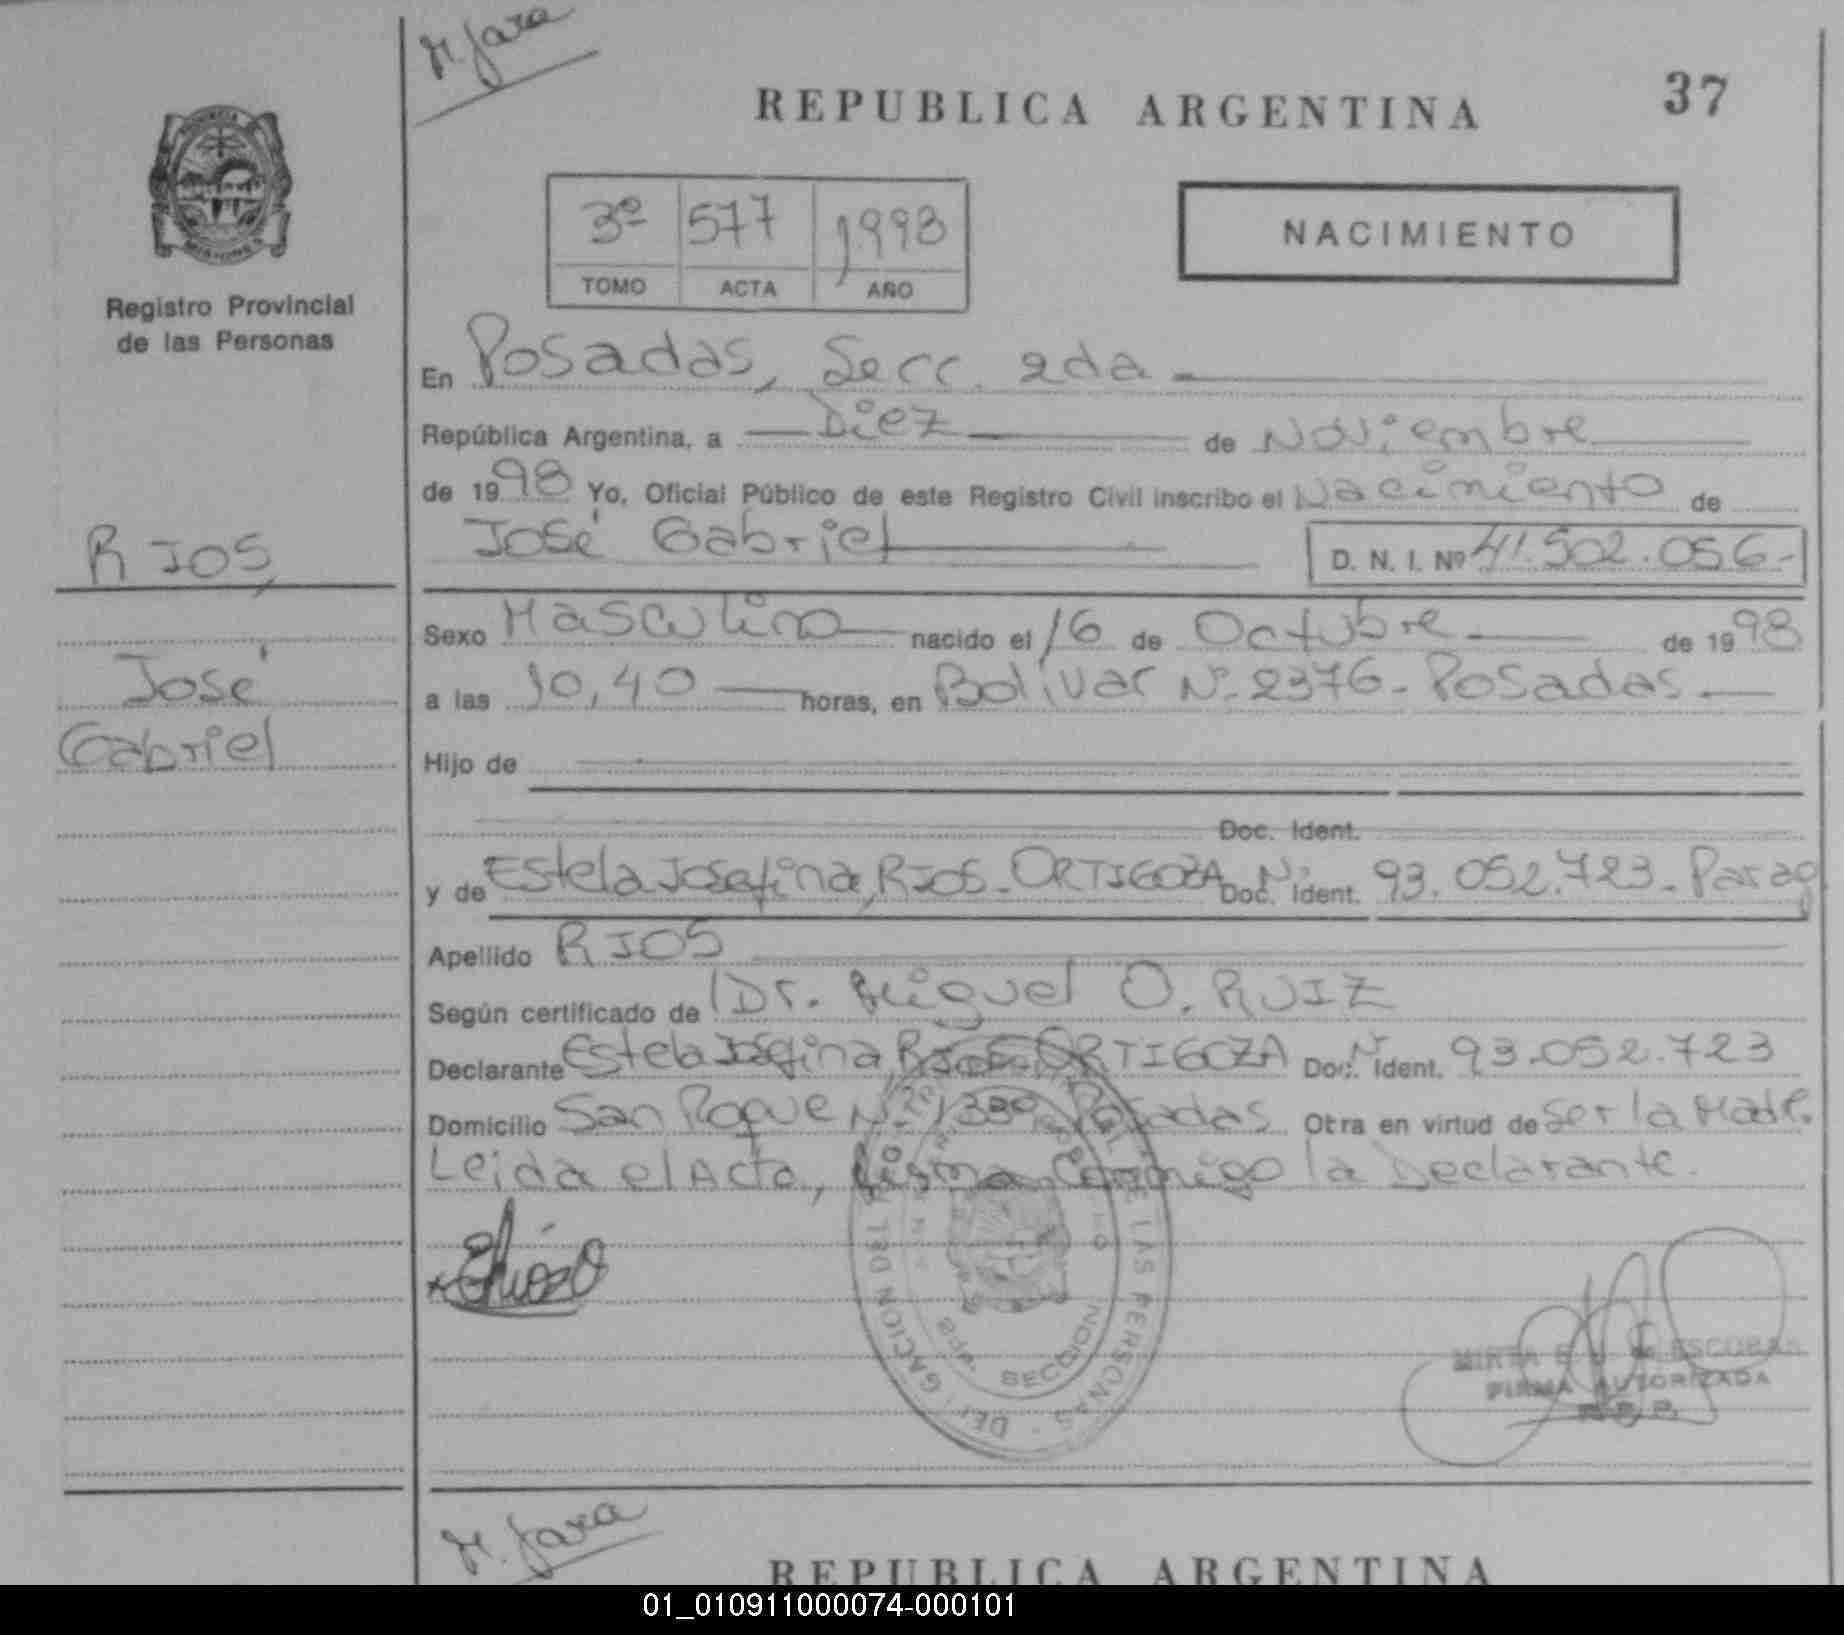 M. Jara
REPUBLICA ARGENTINA
37
3º 577 1998
TOMO ACTA AÑO
NACIMIENTO
Registro Provincial
de las Personas
En Posadas, Secc. 2da
República Argentina, a Diez de Noviembre
de 1998 Yo, Oficial Público de este Registro Civil inscribo el Nacimiento de
José Gabriel D. N. I. Nº 41.502.056.-
RIOS,
José
Gabriel
Sexo Masculino nacido el 16 de Octubre de 1998
a las 10,40 horas, en Bolivar Nº 2376- Posadas.
Hijo de
Doc. Ident.
y de Estela Josefina, RIOS- ORTIGOZA Doc. Ident. Nº 93.052.723- Parag
Apellido RIOS
Según certificado de Dr. Miguel O. RUIZ
Declarante Estela Josefina, RIOS ORTIGOZA Doc. Ident. Nº 93.052.723
Domicilio San Roque Nº Posadas Otra en virtud de ser la Madre.
Leida el Acta, firma Conmigo la Declarante.
DELEGACION DEL REGISTRO PROVINCIAL DE LAS PERSONAS
SECCION
MIRTA ESCOBAR
FIRMA AUTORIZADA
R. P. P.
M. Jara
REPUBLICA ARGENTINA
01_010911000074-000101